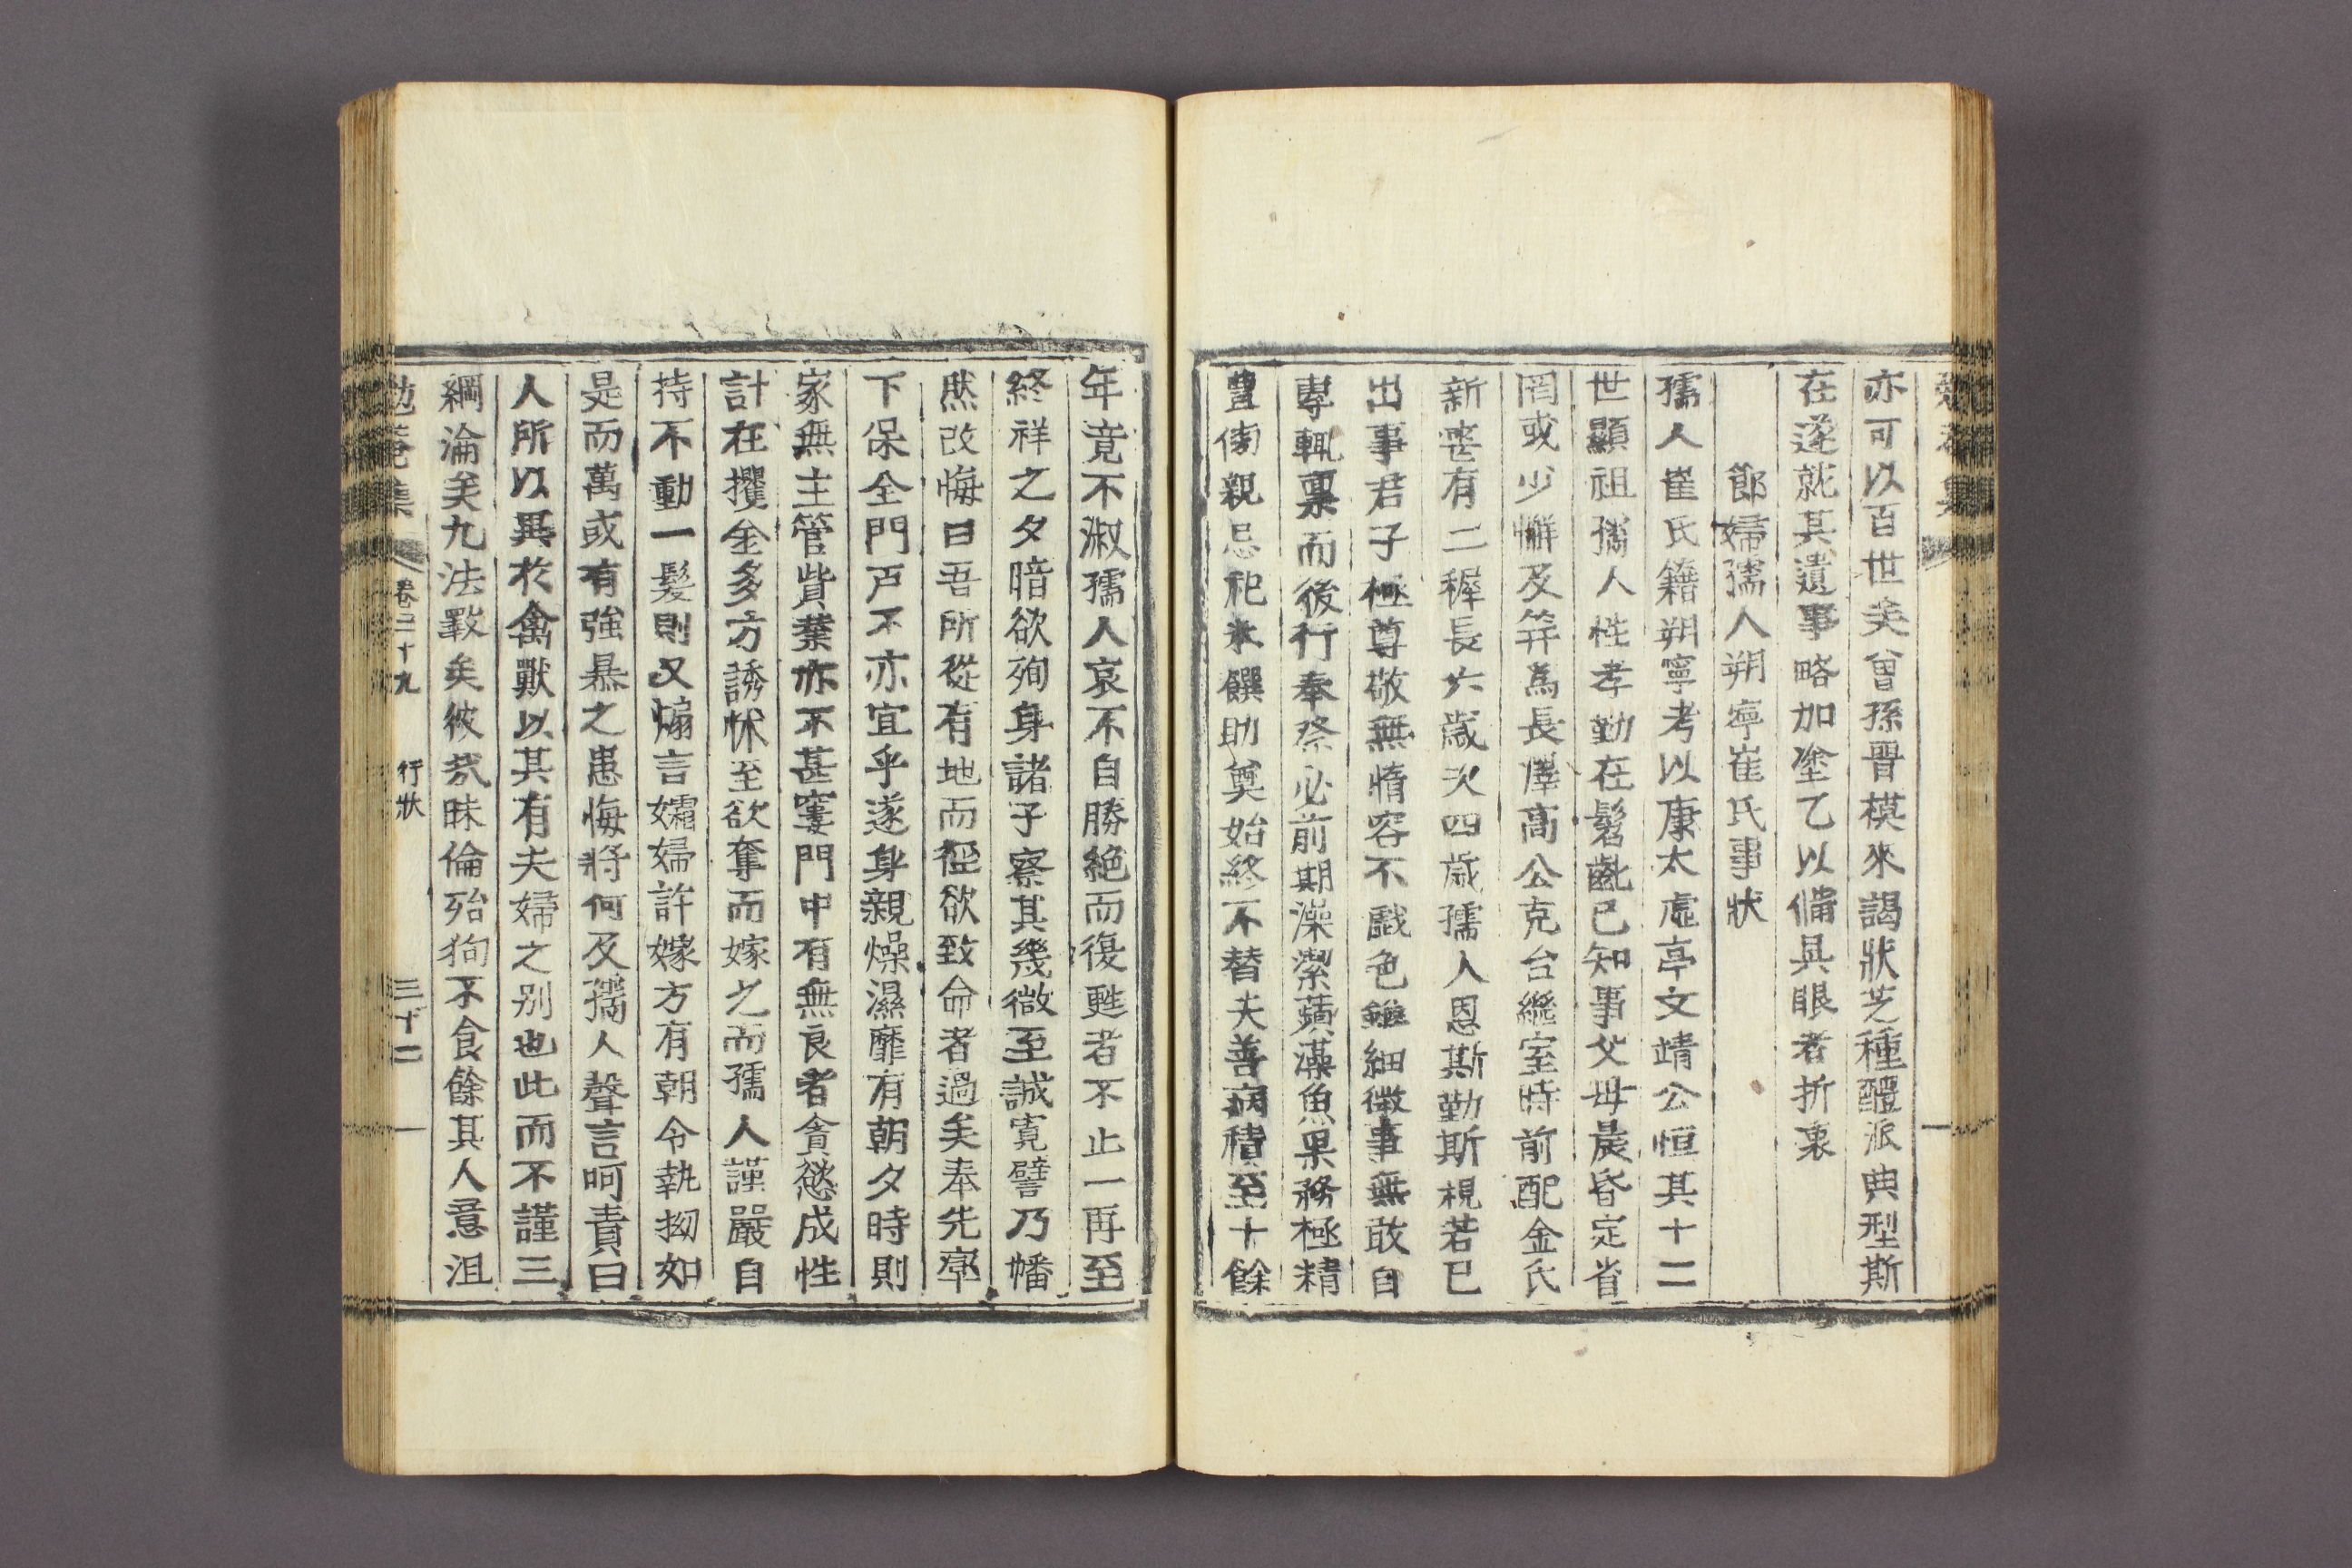 亦可以百世矣曾孫晋模來謁狀芝種醴派典型斯
在遂就其遺事略加塗乙以備具眼者折衷
節婦孺人朔寧崔氏事狀
孺人崔氏籍朔寧考以康太虛亭文靖公恒其十二
世顯祖孺人性孝勤在髫齔已知事父母晨昏定省
罔或少懈及笄爲長澤高公克台繼室時前配金氏
新喪有二穉長六歲次四歲孺人恩斯勤斯視若已
出事君子極尊敬無惰容不戲色雖細微事無敢自
專輒稟而後行奉祭必前期澡潔蘋藻魚果務極精
豊傍親忌祀米饌助奠始終不替夫善病積至十餘
年竟不淑孺人哀不自勝絶而復甦者不止一再至
終祥之夕暗欲殉身諸子察其幾微至誠寛譬乃幡
然改悔曰吾所從有地而徑欲致命者過矣奉先率
下保全門戸不亦宜乎遂身親燥濕靡有朝夕時則
家無主管貲業亦不甚窶門中有無良者貪慾成性
計在攫金多方誘怵至欲奪而嫁之而孺人謹嚴自
持不動一髮則又煽言孀婦許嫁方有朝令執拗如
是而萬或有強暴之患悔將何及孺人聲言呵責曰
人所以異於禽獸以其有夫婦之别也此而不謹三
綱淪矣九法斁矣彼哉昧倫殆狗不食餘其人意沮
勉菴集 卷二十九 行狀 三十二